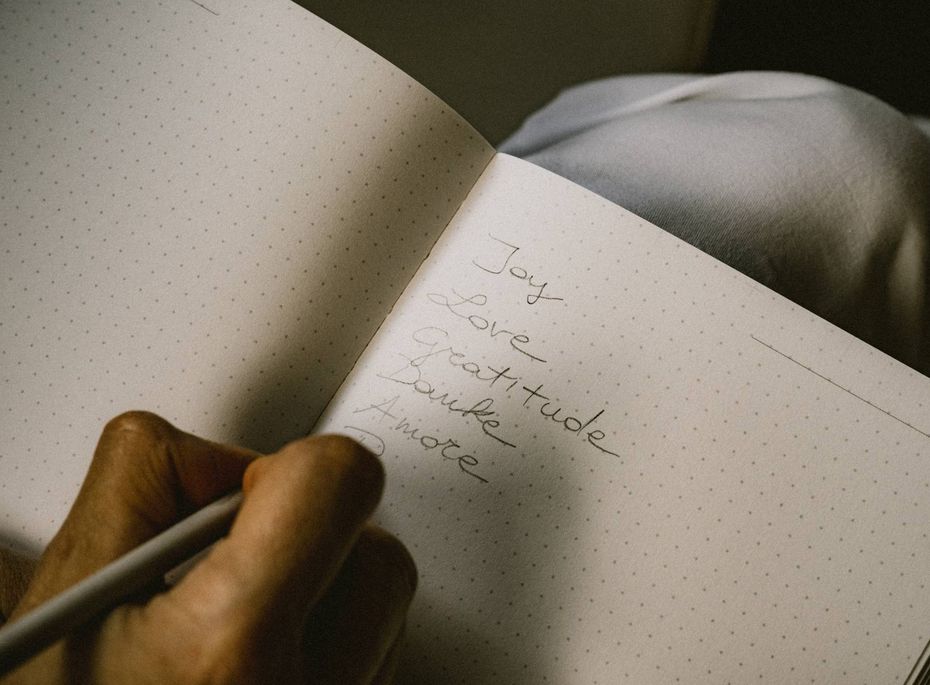 Joy
Love
Gratitude
Danke
Amore